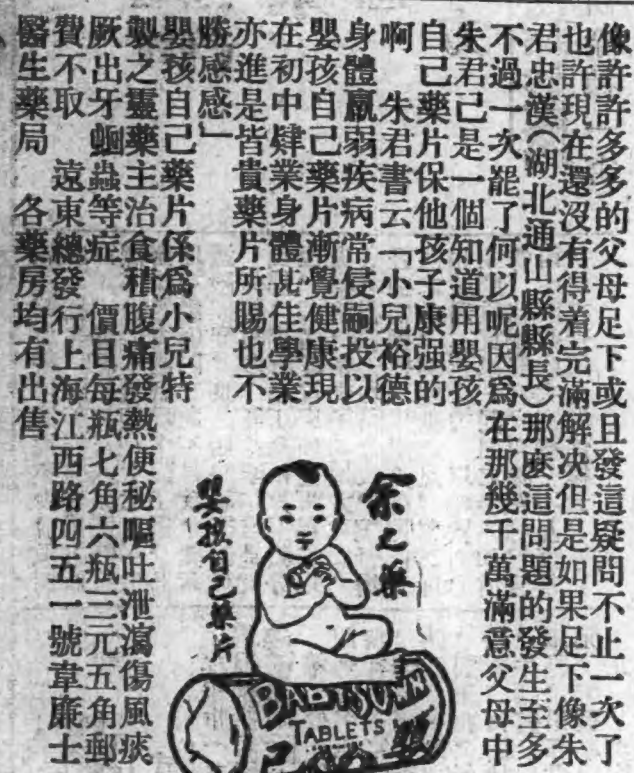 像許許多多的父母足下或且發這疑問不止一次了
也許現在還沒有得着完滿解决但是如果足下像朱
君忠漢(湖北通山縣縣長)那麽這問題的發生至多
不過一次罷了何以呢因爲在那幾千萬滿意父母中
朱君己是一個知道用嬰孩
自己藥片保他孩子康强的
啊 朱君書云「小兒裕德
身體羸弱疾病常侵嗣投以
嬰孩自己藥片漸覺健康現
在初中肄業身體甚佳學業
亦進是皆貴藥片所賜也不
勝感感」
嬰孩自己藥片係爲小兒特
製之靈藥主治食積腹痛發熱便秘嘔吐泄瀉傷風痰
厥出牙蛔蟲等症 價目每瓶七角六瓶三元五角郵
費不取 遠東總發行上海江西路四五一號韋廉士
醫生藥局 各藥房均有出售
余之藥
嬰孩自己藥片
BABY'S OWN
TABLETS